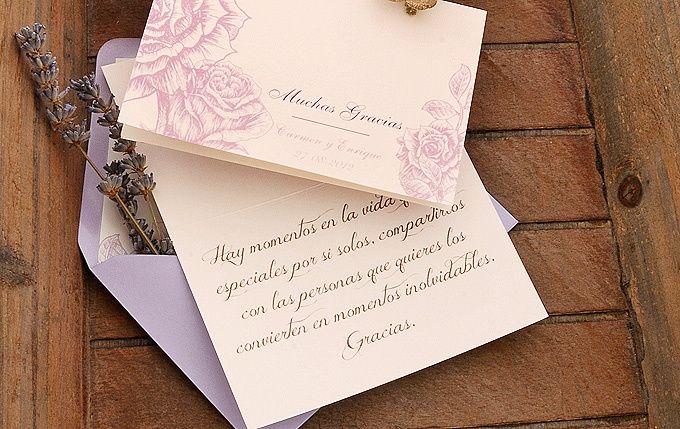 Muchas Gracias
Carmen y Enrique
27·08·2019
Hay momentos en la vida
especiales por si solos, compartirlos
con las personas que quieres los
convierten en momentos inolvidables.
Gracias.